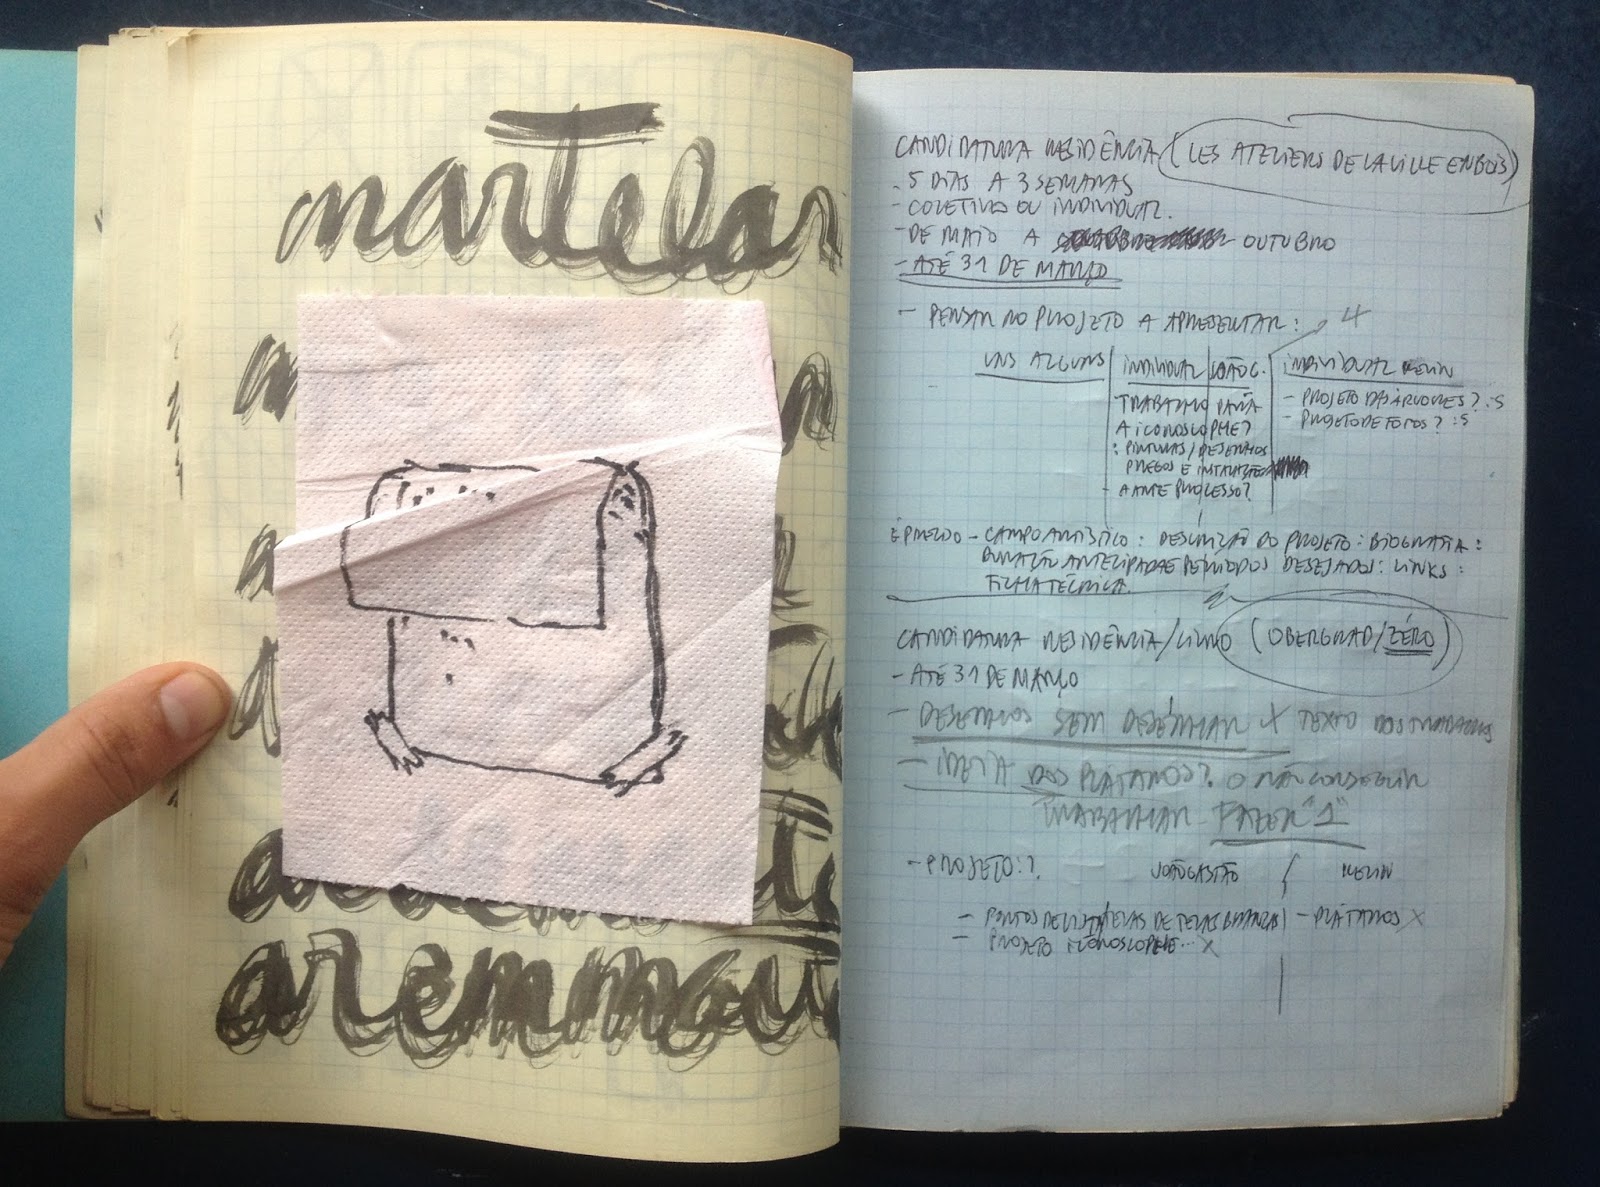 martelar
aremmat
CANDIDATURA RESIDÊNCIA (LES ATELIERS DE LA VILLE EN BOIS)
- 5 DIAS A 3 SEMANAS
- COLETIVO OU INDIVIDUAL.
- DE MAIO A OUTUBRO
- ATÉ 31 DE MARÇO
- PENSAR NO PROJETO A APRESENTAR: 4
UNS ALGUNS
INDIVIDUAL JOÃO G.
TRABALHO PARA
A ICONOSCOPHE?
: PINTURAS/DESENHOS
PREGOS E
- A ANTE PROCESSO?
INDIVIDUAL KEVIN
- PROJETO DAS ÁRVORES? :S
- PROJETO DE FOTOS? :S
É PRECISO - CAMPO ARTÍSTICO : DESCRIÇÃO DO PROJETO : BIOGRAFIA :
DURAÇÃO ANTECIPADA E PERÍODOS DESEJADOS : LINKS :
FICHA TÉCNICA.
CANDIDATURA RESIDÊNCIA/LIVRO (OBERGRAD/ZÉRO)
- ATÉ 31 DE MARÇO
- DESENHOS SEM DESENHAR X TEXTO DOS TRABALHOS
- IDEIA DOS PLÁTANOS? O NÃO CONSEGUIR
TRABALHAR FAZER "1"
- PROJETO:? JOÃO GASTÃO KEVIN
- PONTOS DE VISTA/TELAS DE TELAS BRANCAS - PLÁTANOS X
- PROJETO ICONOSCOPHE... X